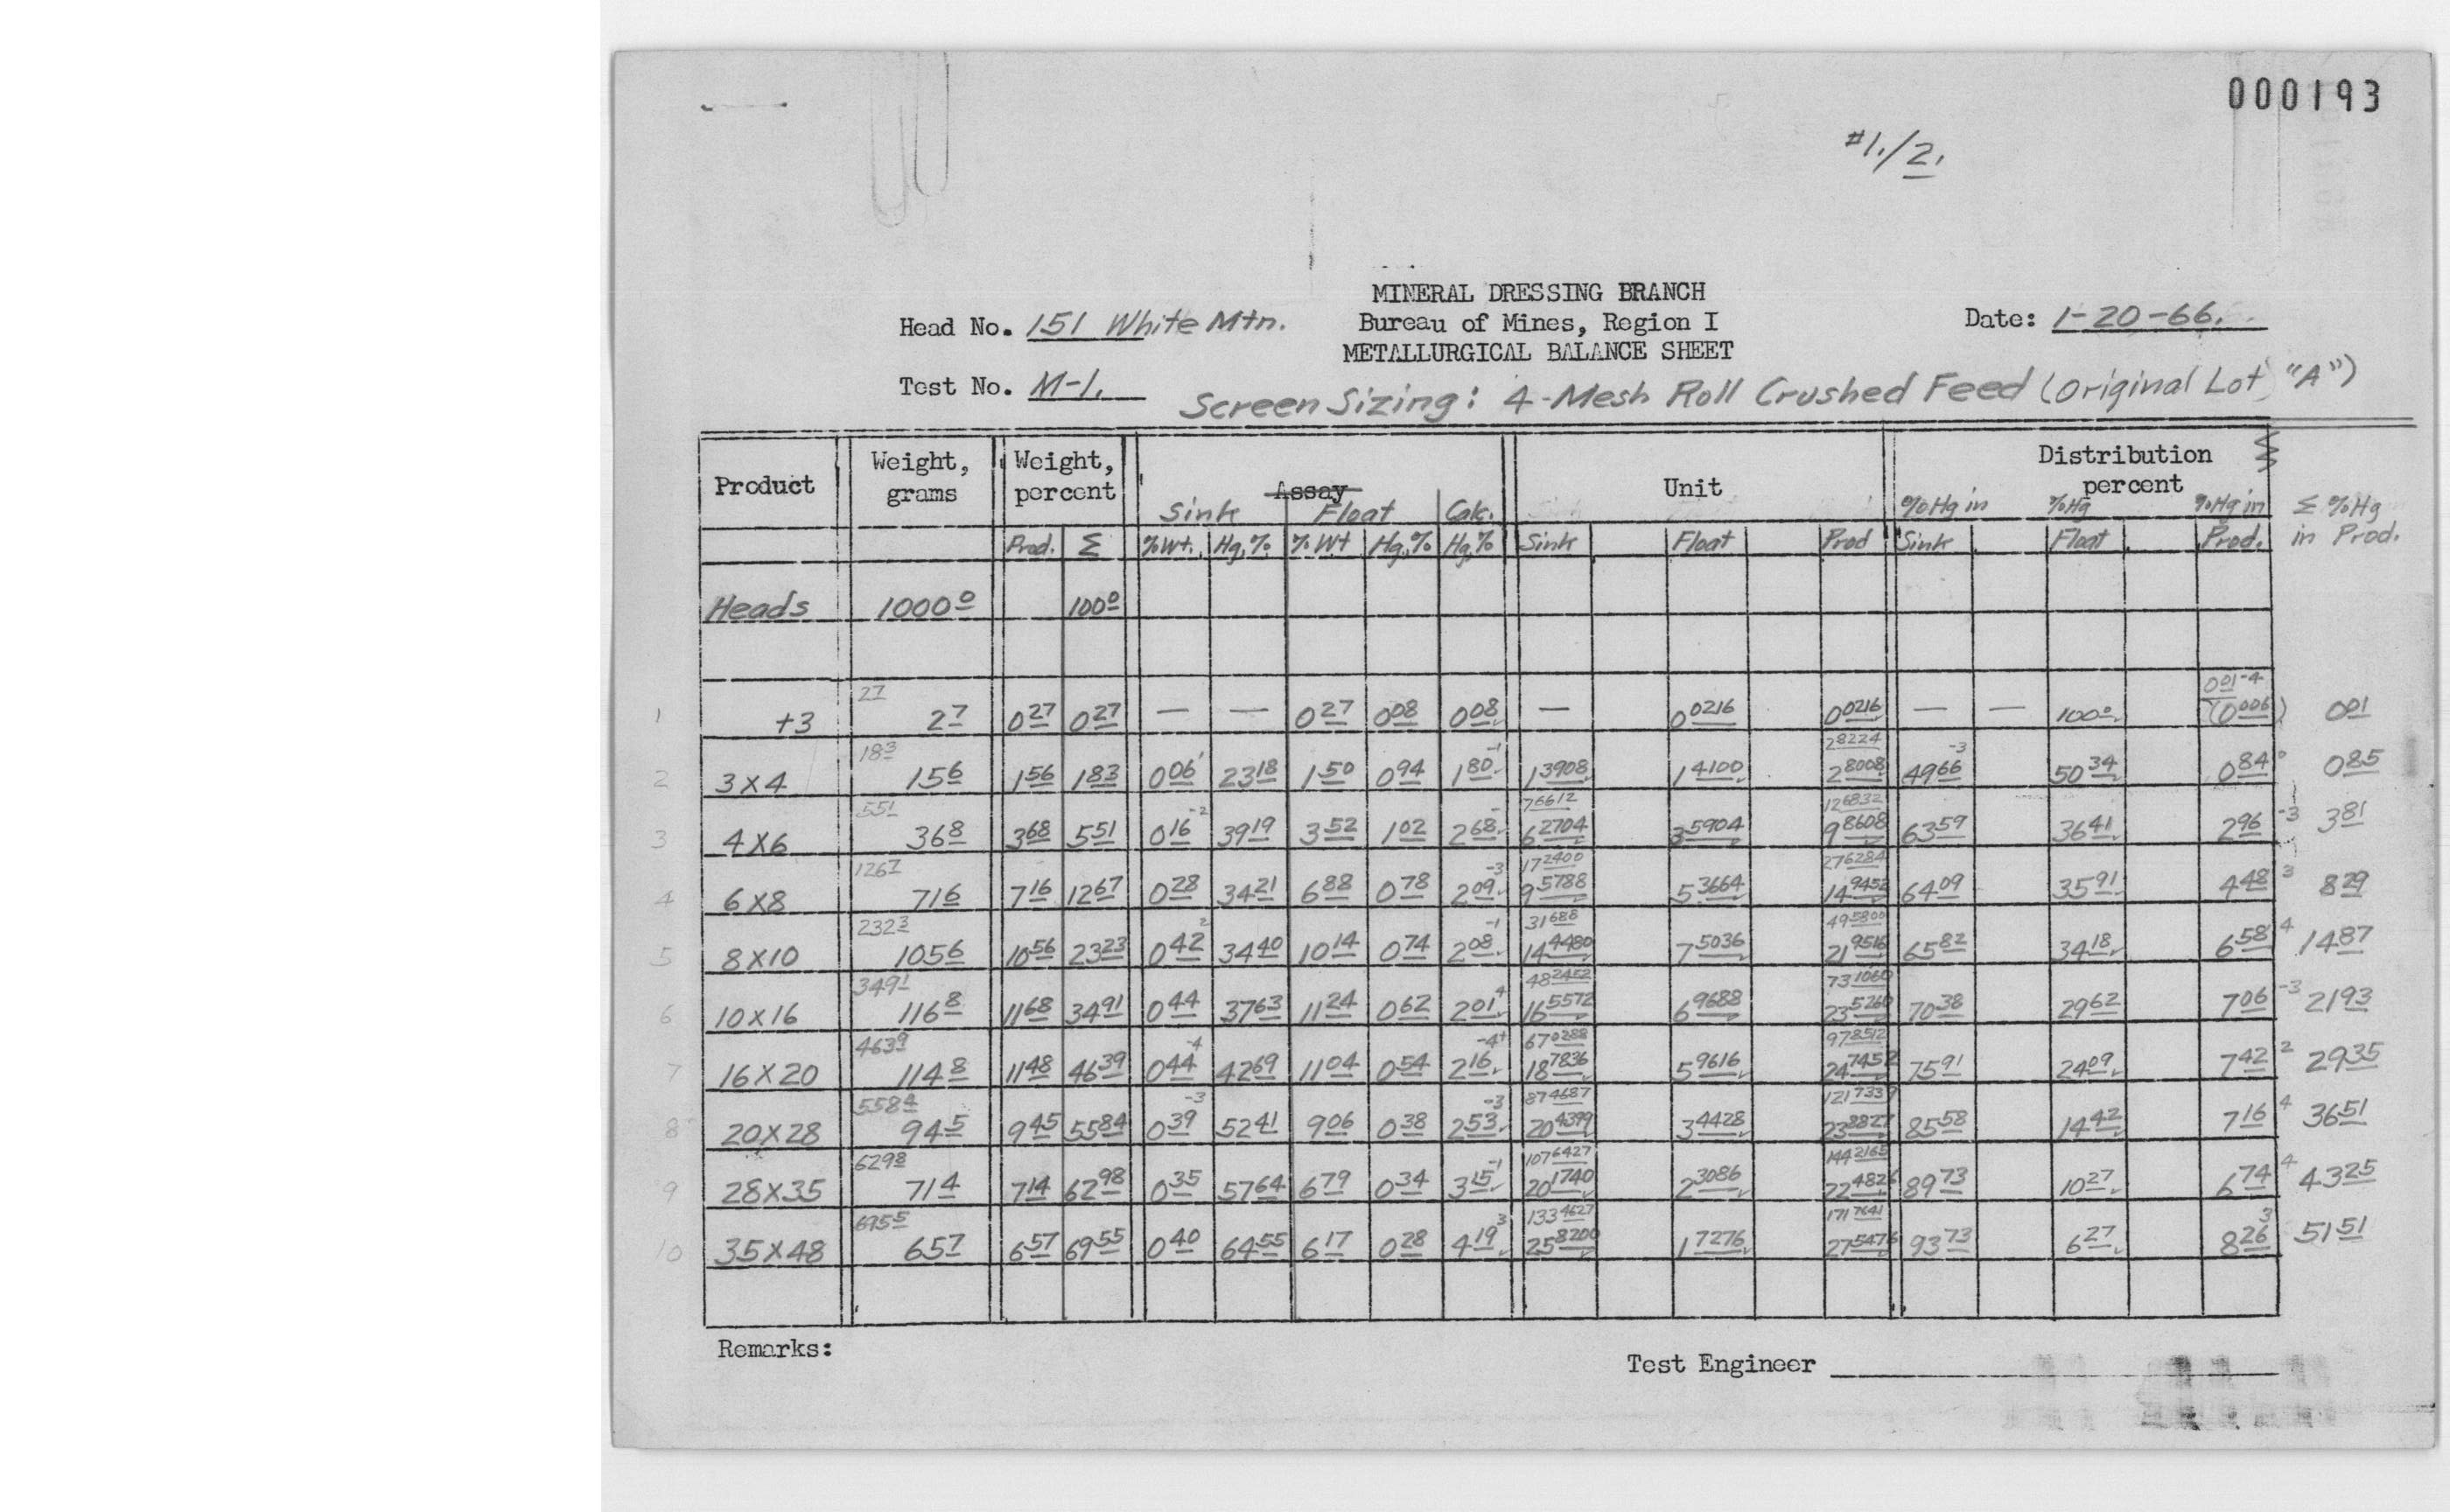 000193
#1./2.
MINERAL DRESSING BRANCH
Head No. 151 White Mtn. Bureau of Mines, Region I Date: 1-20-66.
METALLURGICAL BALANCE SHEET
Test No. M-1. Screen Sizing: 4-Mesh Roll Crushed Feed (Original Lot "A")
Product Weight, grams Weight, percent Assay Unit Distribution percent
Sink Float Calc. %Hg in %Hg %Hg in Σ %Hg in Prod.
Prod. Σ %Wt. Hg,% % Wt Hg,% Hg,% Sink Float Prod Sink Float Prod.
Heads 1000 0 100 0
27 001-4
1 +3 2 7 0 27 0 27 — — 0 27 0 08 0 08 — 0 0216 0 0216 — — 100 0 (0 006) 0 01
18 3 -1 2 8224 -3
2 3X4 15 6 1 56 1 83 0 06 23 18 1 50 0 94 1 80 1 3908 1 4100 2 8008 49 66 50 34 0 84 0 0 85
55 1 -2 - 7 6612 12 6832
3 4X6 36 8 3 68 5 51 0 16 39 19 3 52 1 02 2 68 6 2704 3 5904 9 8608 63 59 36 41 2 96 -3 3 81
126 7 -3 17 2400 27 6284
4 6X8 71 6 7 16 12 67 0 28 34 21 6 88 0 78 2 09 9 5788 5 3664 14 9452 64 09 35 91 4 48 3 8 29
232 3 2 -1 31 688 49 5800
5 8X10 105 6 10 56 23 23 0 42 34 40 10 14 0 74 2 08 14 4480 7 5036 21 9516 65 82 34 18 6 58 4 14 87
349 1 4 48 2452 73 1060
6 10X16 116 8 11 68 34 91 0 44 37 63 11 24 0 62 2 01 16 5572 6 9688 23 5260 70 38 29 62 7 06 -3 21 93
463 9 -4 -4+ 67 0288 97 8512
7 16X20 114 8 11 48 46 39 0 44 42 69 11 04 0 54 2 16 18 7836 5 9616 24 7452 75 91 24 09 7 42 2 29 35
558 4 -3 -3 87 4687 121 7339
8 20X28 94 5 9 45 55 84 0 39 52 41 9 06 0 38 2 53 20 4399 3 4428 23 8827 85 58 14 42 7 16 4 36 51
629 8 -1 107 6427 144 2165
9 28X35 71 4 7 14 62 98 0 35 57 64 6 79 0 34 3 15 20 1740 2 3086 22 4826 89 73 10 27 6 74 4 43 25
695 5 3 133 4627 171 7641 3
10 35X48 65 7 6 57 69 55 0 40 64 55 6 17 0 28 4 19 25 8200 1 7276 27 5476 93 73 6 27 8 26 51 51
Remarks:
Test Engineer